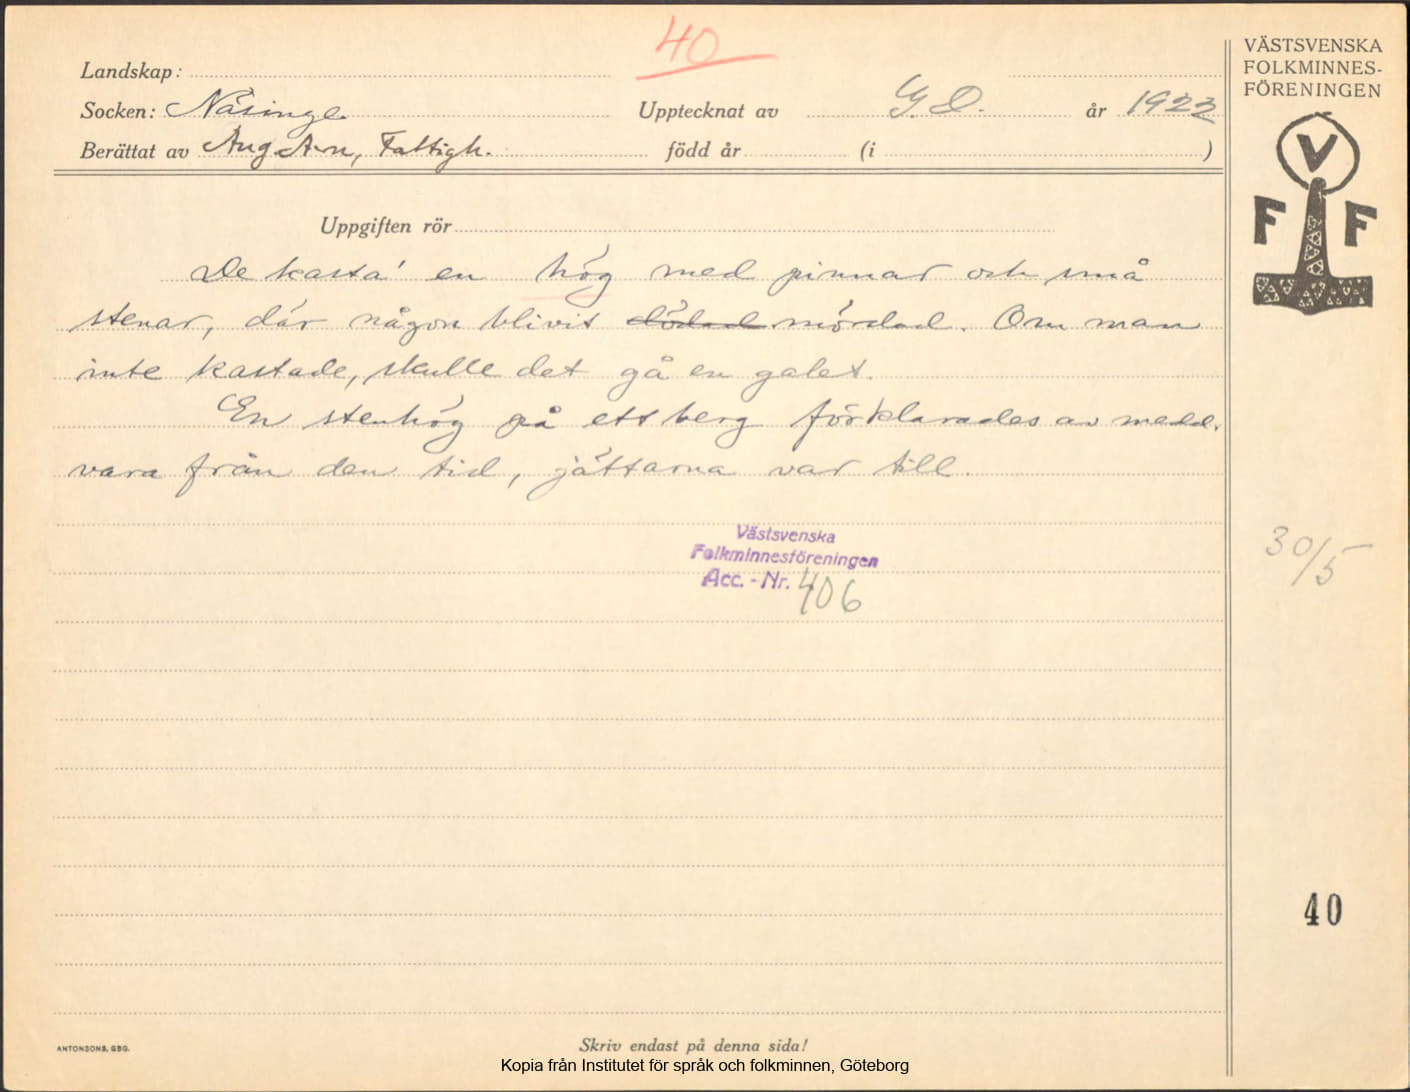 40
VÄSTSVENSKA
FOLKMINNES-
FÖRENINGEN
Landskap:
Socken: Näsinge Upptecknat av G. D. år 1922
Berättat av Aug. Arn, Fattigh. född år (i )
V
F F
Uppgiften rör
De kasta' en hög med pinnar och små
stenar, där någon blivit dödad mördad. Om man
inte kastade, skulle det gå en galet.
En stenhög på ett berg förklarades av medd.
vara från den tid, jättarna var till.
Västsvenska
Folkminnesföreningen
Acc. - Nr. 406
30/5
40
ANTONSONS, GBG.
Skriv endast på denna sida!
Kopia från Institutet för språk och folkminnen, Göteborg